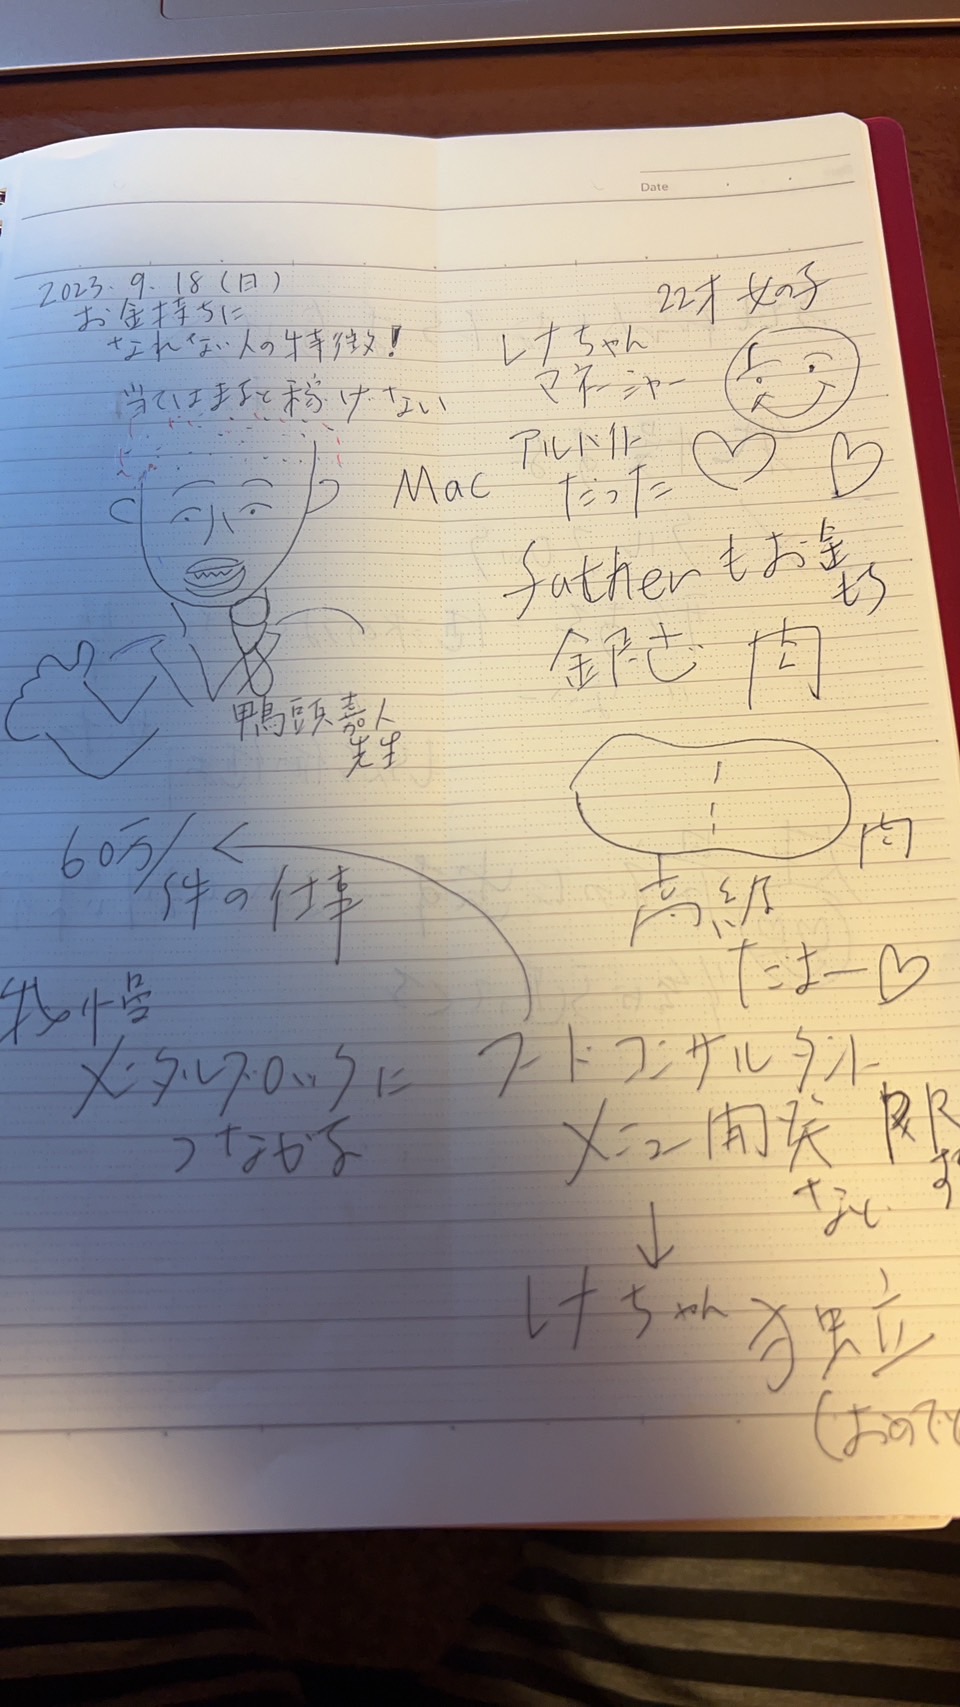 2023.9.18(日)
お金持ちに
なれない人の特徴!
当てはまると稼げない
鴨頭嘉人
先生
60万/
1件の仕事
我慢
メンタルブロックに
つながる
Date
22才 女の子
しけちゃん
マネージャー
Mac アルバイト
だった
fatherもお金
もち
銀だざ 肉
肉
高級
だよー
フードコンサルタント
メニュー開発
など
しけちゃん 独立